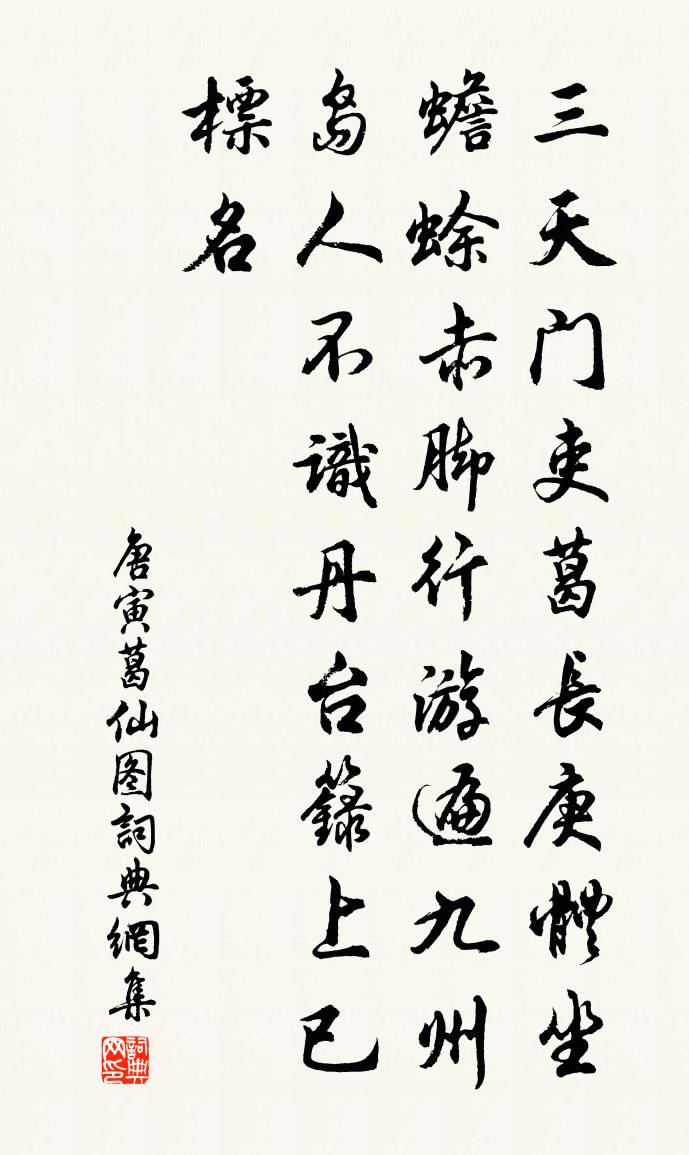 三天门吏葛長庚體坐
蟾蜍赤脚行游遍九州
島人不識丹台籙上已
標名
唐寅葛仙图詞典網集
詞典网印